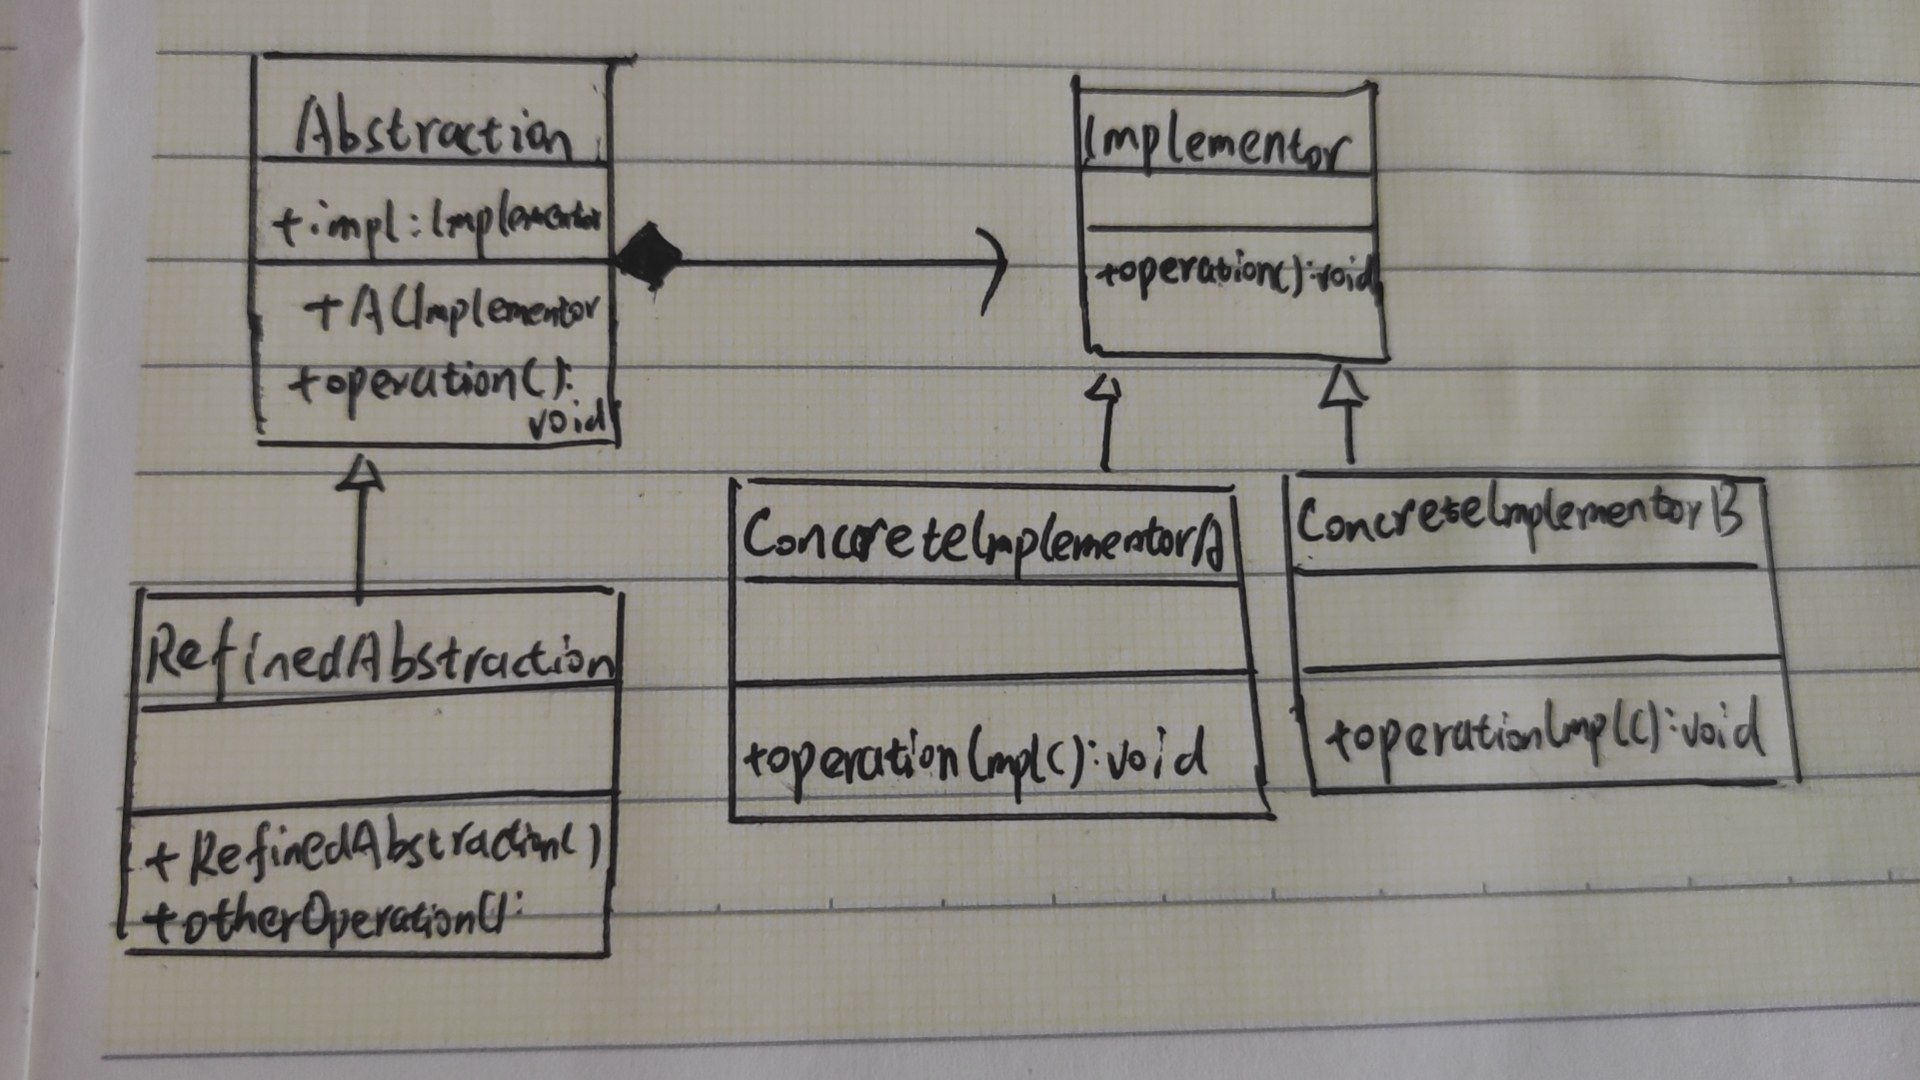 Abstraction
+impl: Implementor
+A(Implementor
+operation():
void
Implementor
+operation():void
RefinedAbstraction
+RefinedAbstraction()
+otherOperation():
ConcreteImplementorA
+operationImpl():void
ConcreteImplementorB
+operationImpl():void